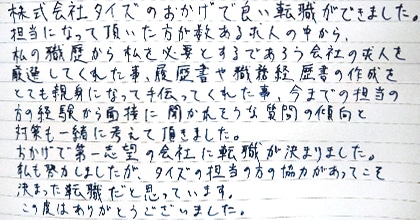 株式会社タイズのおかげで良い転職ができました。
担当になって頂いた方が数ある求人の中から、
私の職歴から私を必要とするであろう会社の求人を
厳選してくれた事、履歴書や職務経歴書の作成を
とても親身になって手伝ってくれた事、今までの担当の
方の経験から面接に聞かれそうな質問の傾向と
対策も一緒に考えて頂きました。
おかげで第一志望の会社に転職が決まりました。
私も努力しましたが、タイズの担当の方の協力があってこそ
決まった転職だと思っています。
この度はありがとうございました。